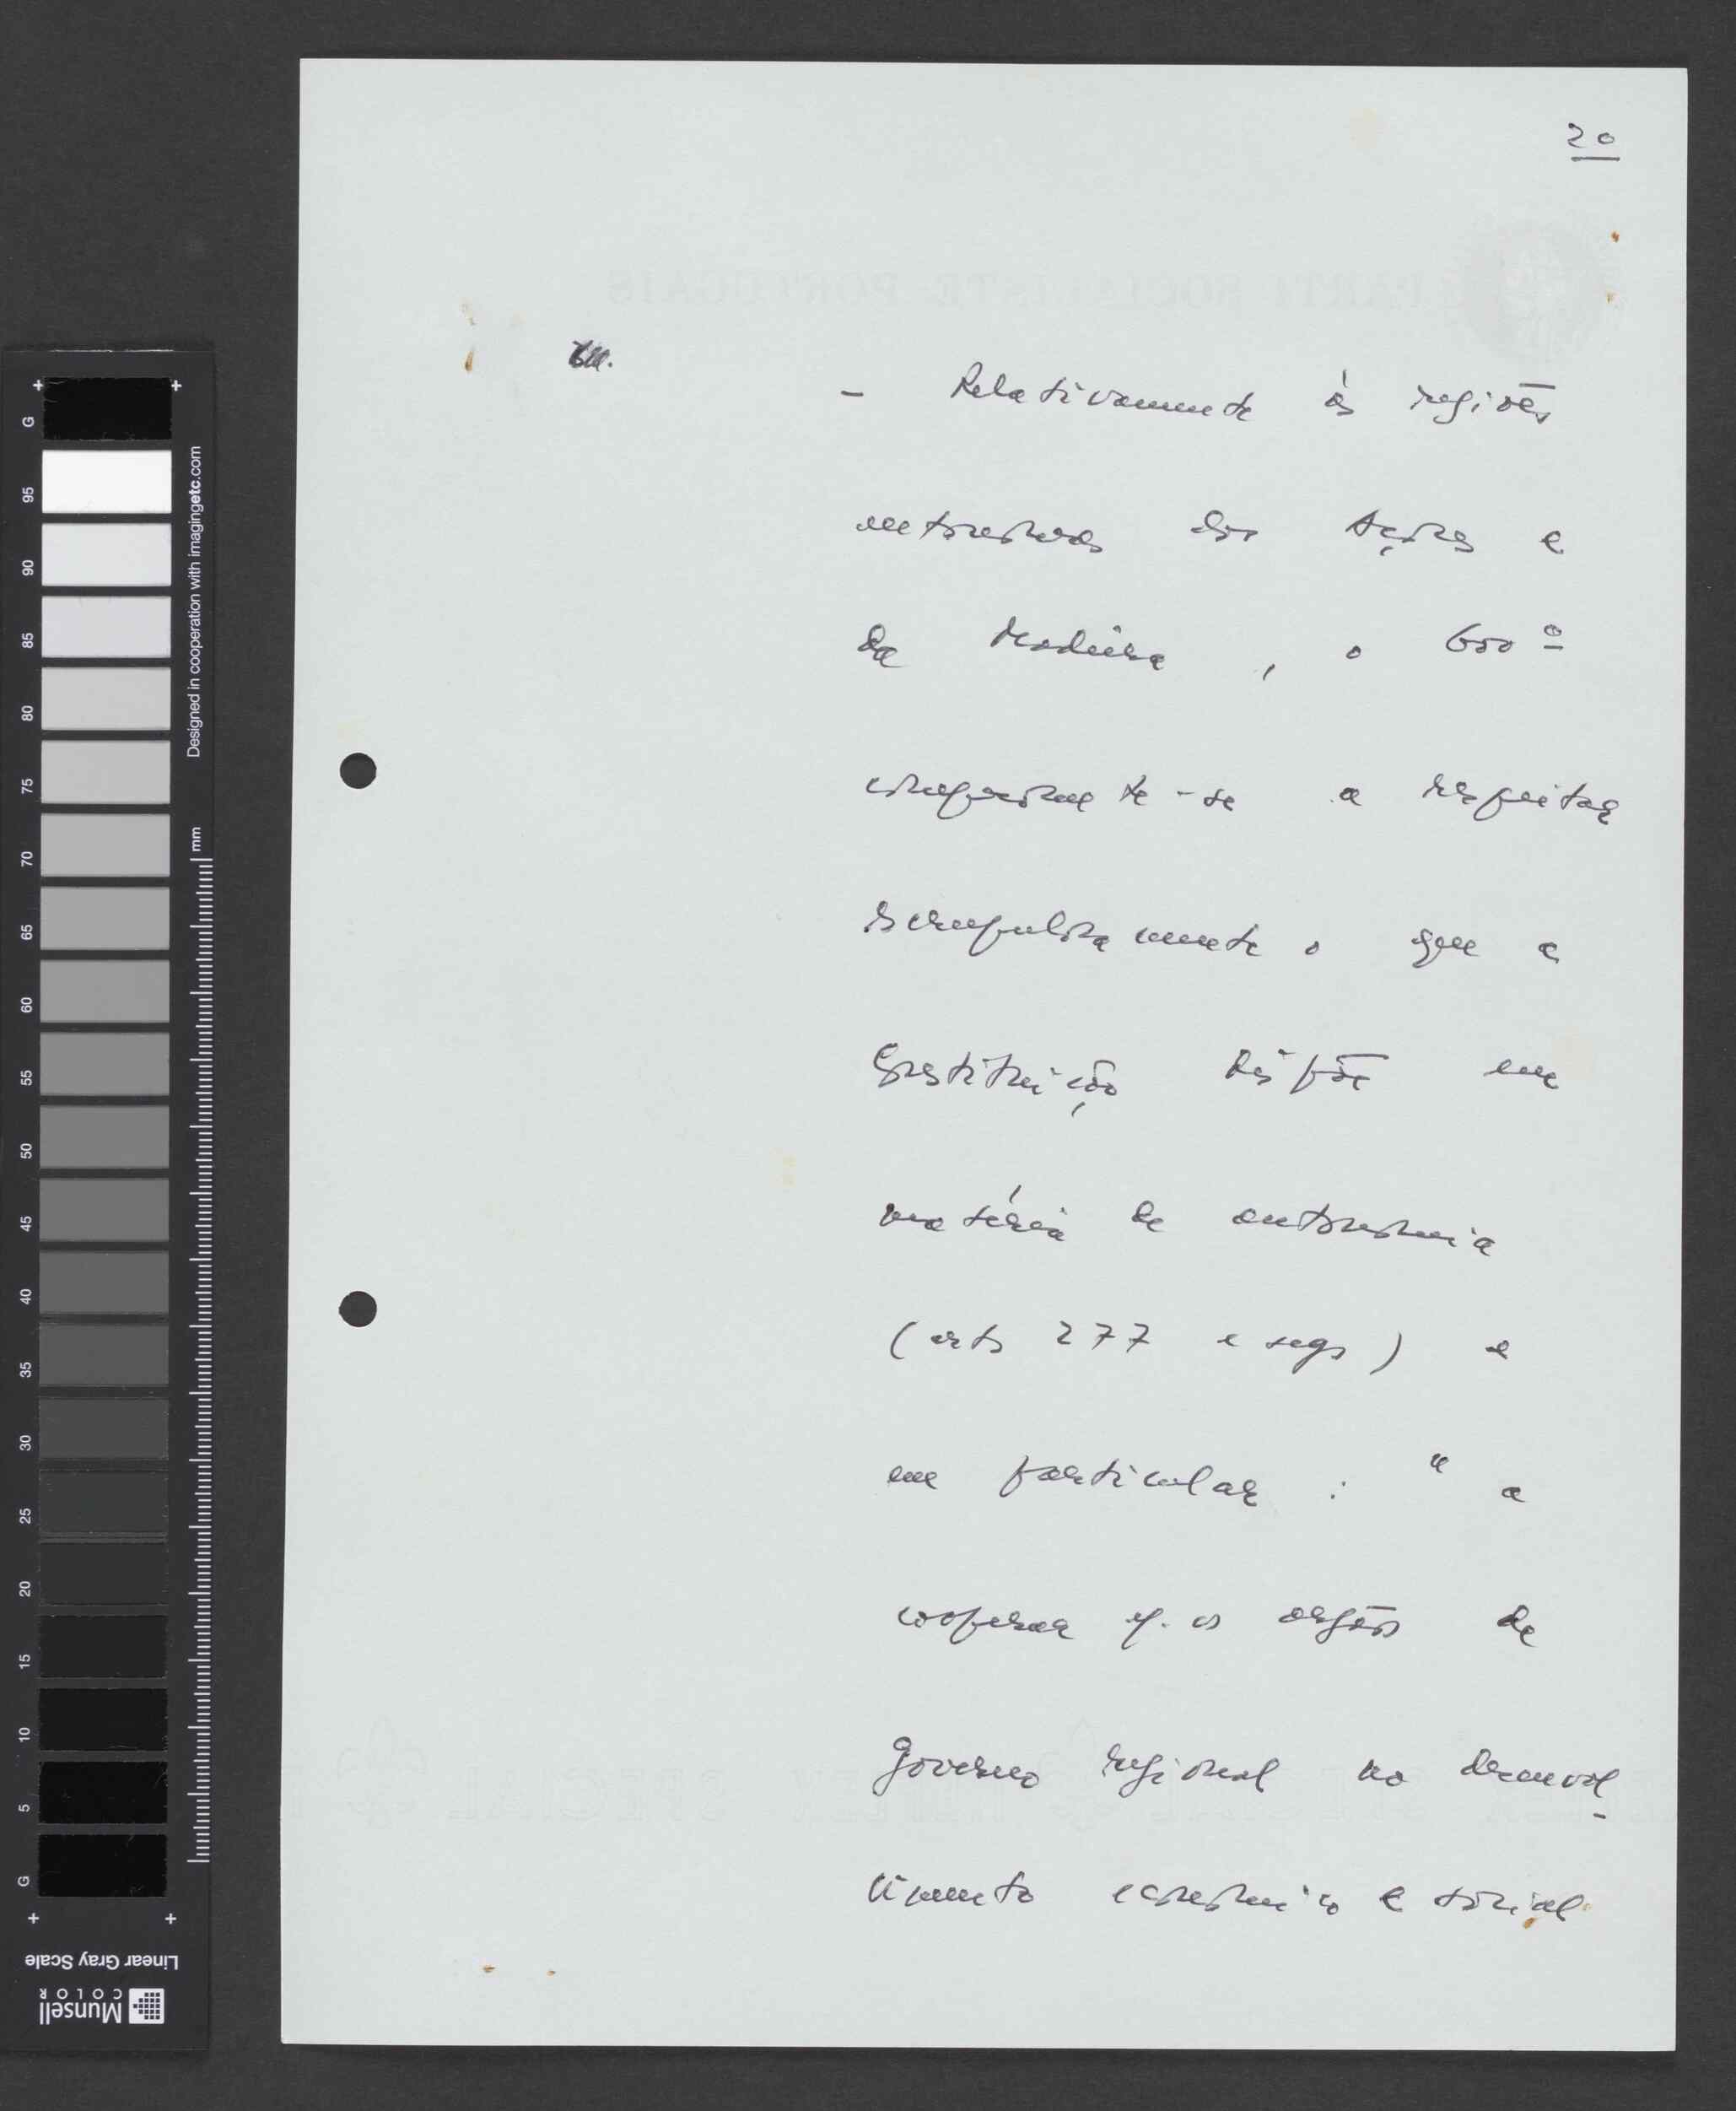 20
- Relativamente às regiões
autónomas dos Açores e
da Madeira, o Govº
compromete-se a respeitar
escrupulosamente o que a
Constituição dispõe em
matéria de autonomia
(arts 277 e segs) e
em particular: "a
cooperar c/. os orgãos de
Governo regional no desenvol-
vimento económico e social
PARTI SOCIALISTE PORTUGAIS
G
95
90
85
80
75
70
65
60
55
50
45
40
35
30
25
20
15
10
5
G
mm
Designed in cooperation with imagingetc.com
Linear Gray Scale
Munsell
COLOR